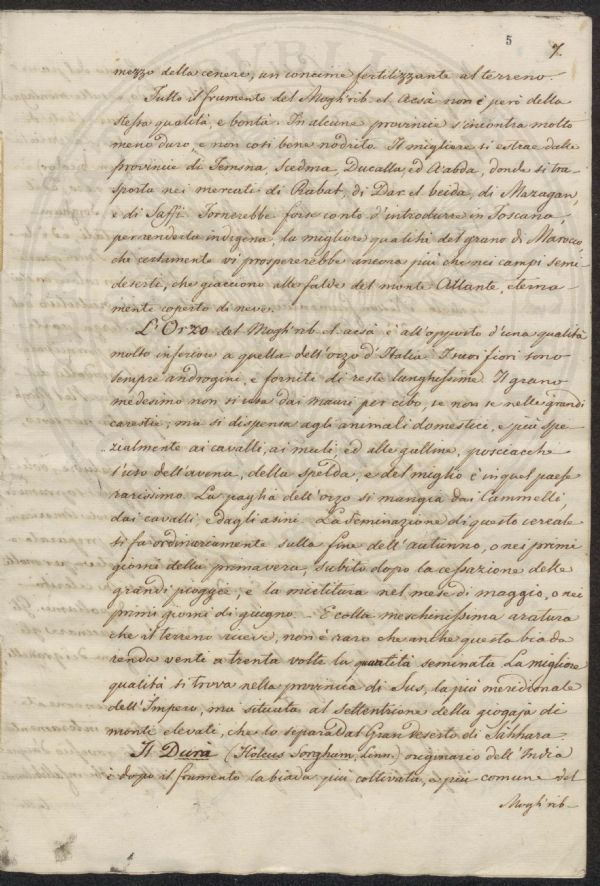 5
7.
mezzo della cenere, un concime fertilizzante al terreno.
Tutto il frumento del Mogh'rib el Acsà non è però della
stessa qualità, e bontà. In alcune provincie s'incontra molto
meno duro, e non così bene nodrito. Il migliore si estrae dalle
provincie di Temsna, Scedma, Ducalla, ed A'abda, donde si tra-
sporta nei mercati di Rabat, di Dar el beida, di Mazagan,
e di Saffi. Tornerebbe forse conto d'introdurre in Toscana,
per renderla indigena, la migliore qualità del grano di Marocco,
che certamente vi prospererebbe ancora più che nei campi semi-
deserti, che giacciono alle falde del monte Atlante, eterna-
mente coperto di neve.
L'Orzo del Mogh'rib el acsà è all'opposto d'una qualità
molto inferiore a quella dell'orzo d'Italia. I suoi fiori sono
sempre androgini, e forniti di reste lunghissime. Il grano
medesimo non si usa dai mauri per cibo, se non se nelle grandi
carestie; ma si dispensa agli animali domestici, e più spe-
zialmente ai cavalli, ai muli, ed alle galline, posciacchè
l'uso dell'avena, della spelda, e del miglio è in quel paese
rarissimo. La paglia dell'orzo si mangia dai Cammelli,
dai cavalli, e dagli asini. La Seminazione di questo cereale
si fa ordinariamente sulla fine dell'autunno, o nei primi
giorni della primavera, subito dopo la cessazione delle
grandi piogge; e la mietitura nel mese di maggio, o nei
primi giorni di giugno. E colla meschinissima aratura
che il terreno riceve, non è raro che anche questa biada
renda venti a trenta volte la quantità seminata. La migliore
qualità si trova nella provincia di Sus, la più meridionale
dell'Impero, ma situata al settentrione della giogaja di
monti elevati, che lo separa dal Gran deserto di Sahhara.
Il Dura (Holcus Sorghum, Linn.) originario dell'India
è dopo il frumento la biada più coltivata, e più comune del
Mogh'rib